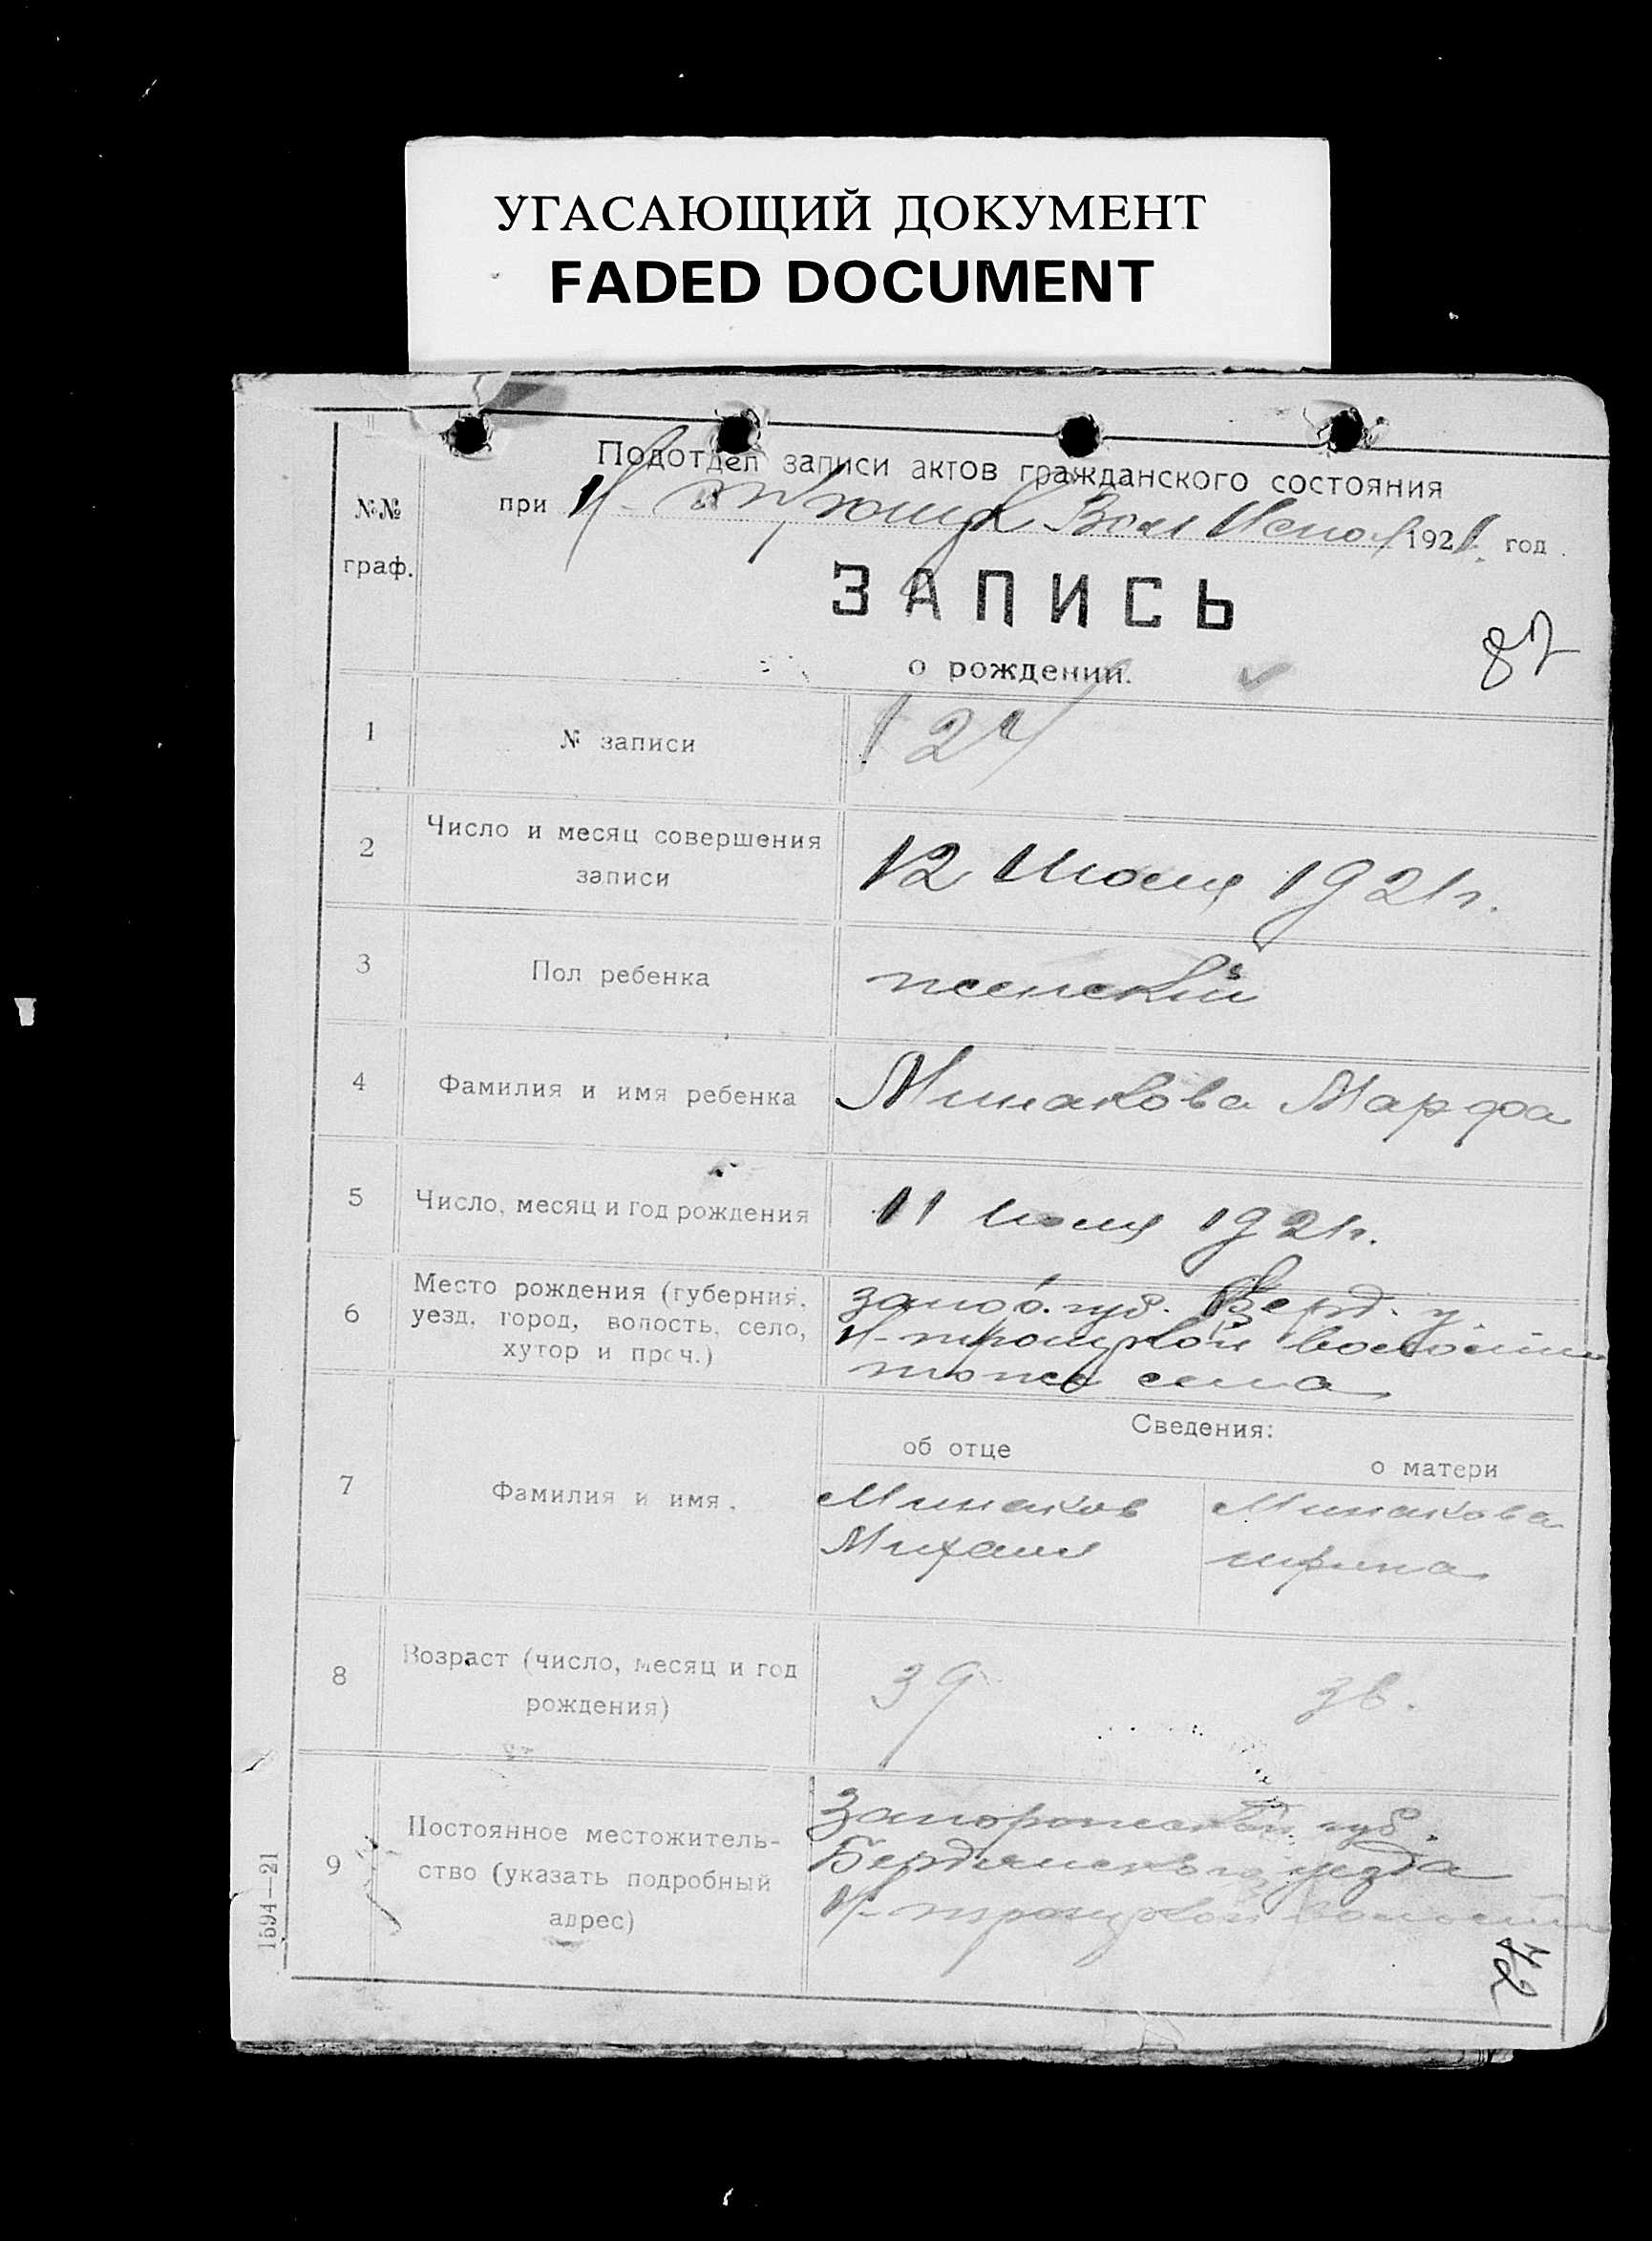 УГАСАЮЩИЙ ДОКУМЕНТ
FADED DOCUMENT
Подотдел записи актов гражданского состояния
№№
граф.
при Н- Вол 1921 год
ЗАПИСЬ
о рождении.
87
1
№ записи
124
2
Число и месяц совершения
записи
12 Июля 1921 г.
3
Пол ребенка
женский
4
Фамилия и имя ребенка
Минакова Марфа
5
Число, месяц и год рождения
11 Июля 1921 г.
6
Место рождения (губерния,
уезд, город, волость, село,
хутор и проч.)
губ. Берд. у
Н-троицкой волости
тоже села
Сведения:
об отце
о матери
7
Фамилия и имя.
Минаков
Михаил
Минакова
Ирина
8
Возраст (число, месяц и год
рождения)
39
9
Постоянное местожитель-
ство (указать подробный
адрес)
Запорожской губ.
Бердянского уезда
Н-троицкой волости
42
1594—21